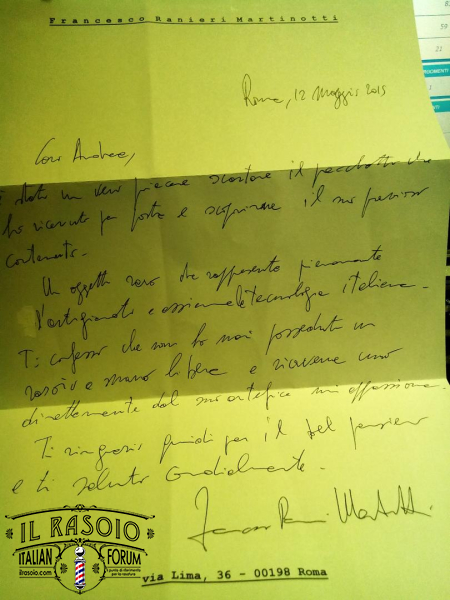 Francesco Ranieri Martinotti
Roma, 12 Maggio 2015
Caro Andrea,
è stato un vero piacere scartare il pacchetto che
ho ricevuto per posta e scoprirne il suo prezioso
contenuto.
Un oggetto raro che rappresenta pienamente
l'artigianato e assieme la tecnologia italiana.
Ti confesso che non ho mai posseduto un
rasoio a mano libera e riceverne uno
direttamente dal suo artefice mi appassiona.
Ti ringrazio quindi per il bel pensiero
e ti saluto cordialmente.
IL RASOIO
ITALIAN FORUM
ilrasoio.com
il punto di riferimento
per la rasatura
via Lima, 36 - 00198 Roma